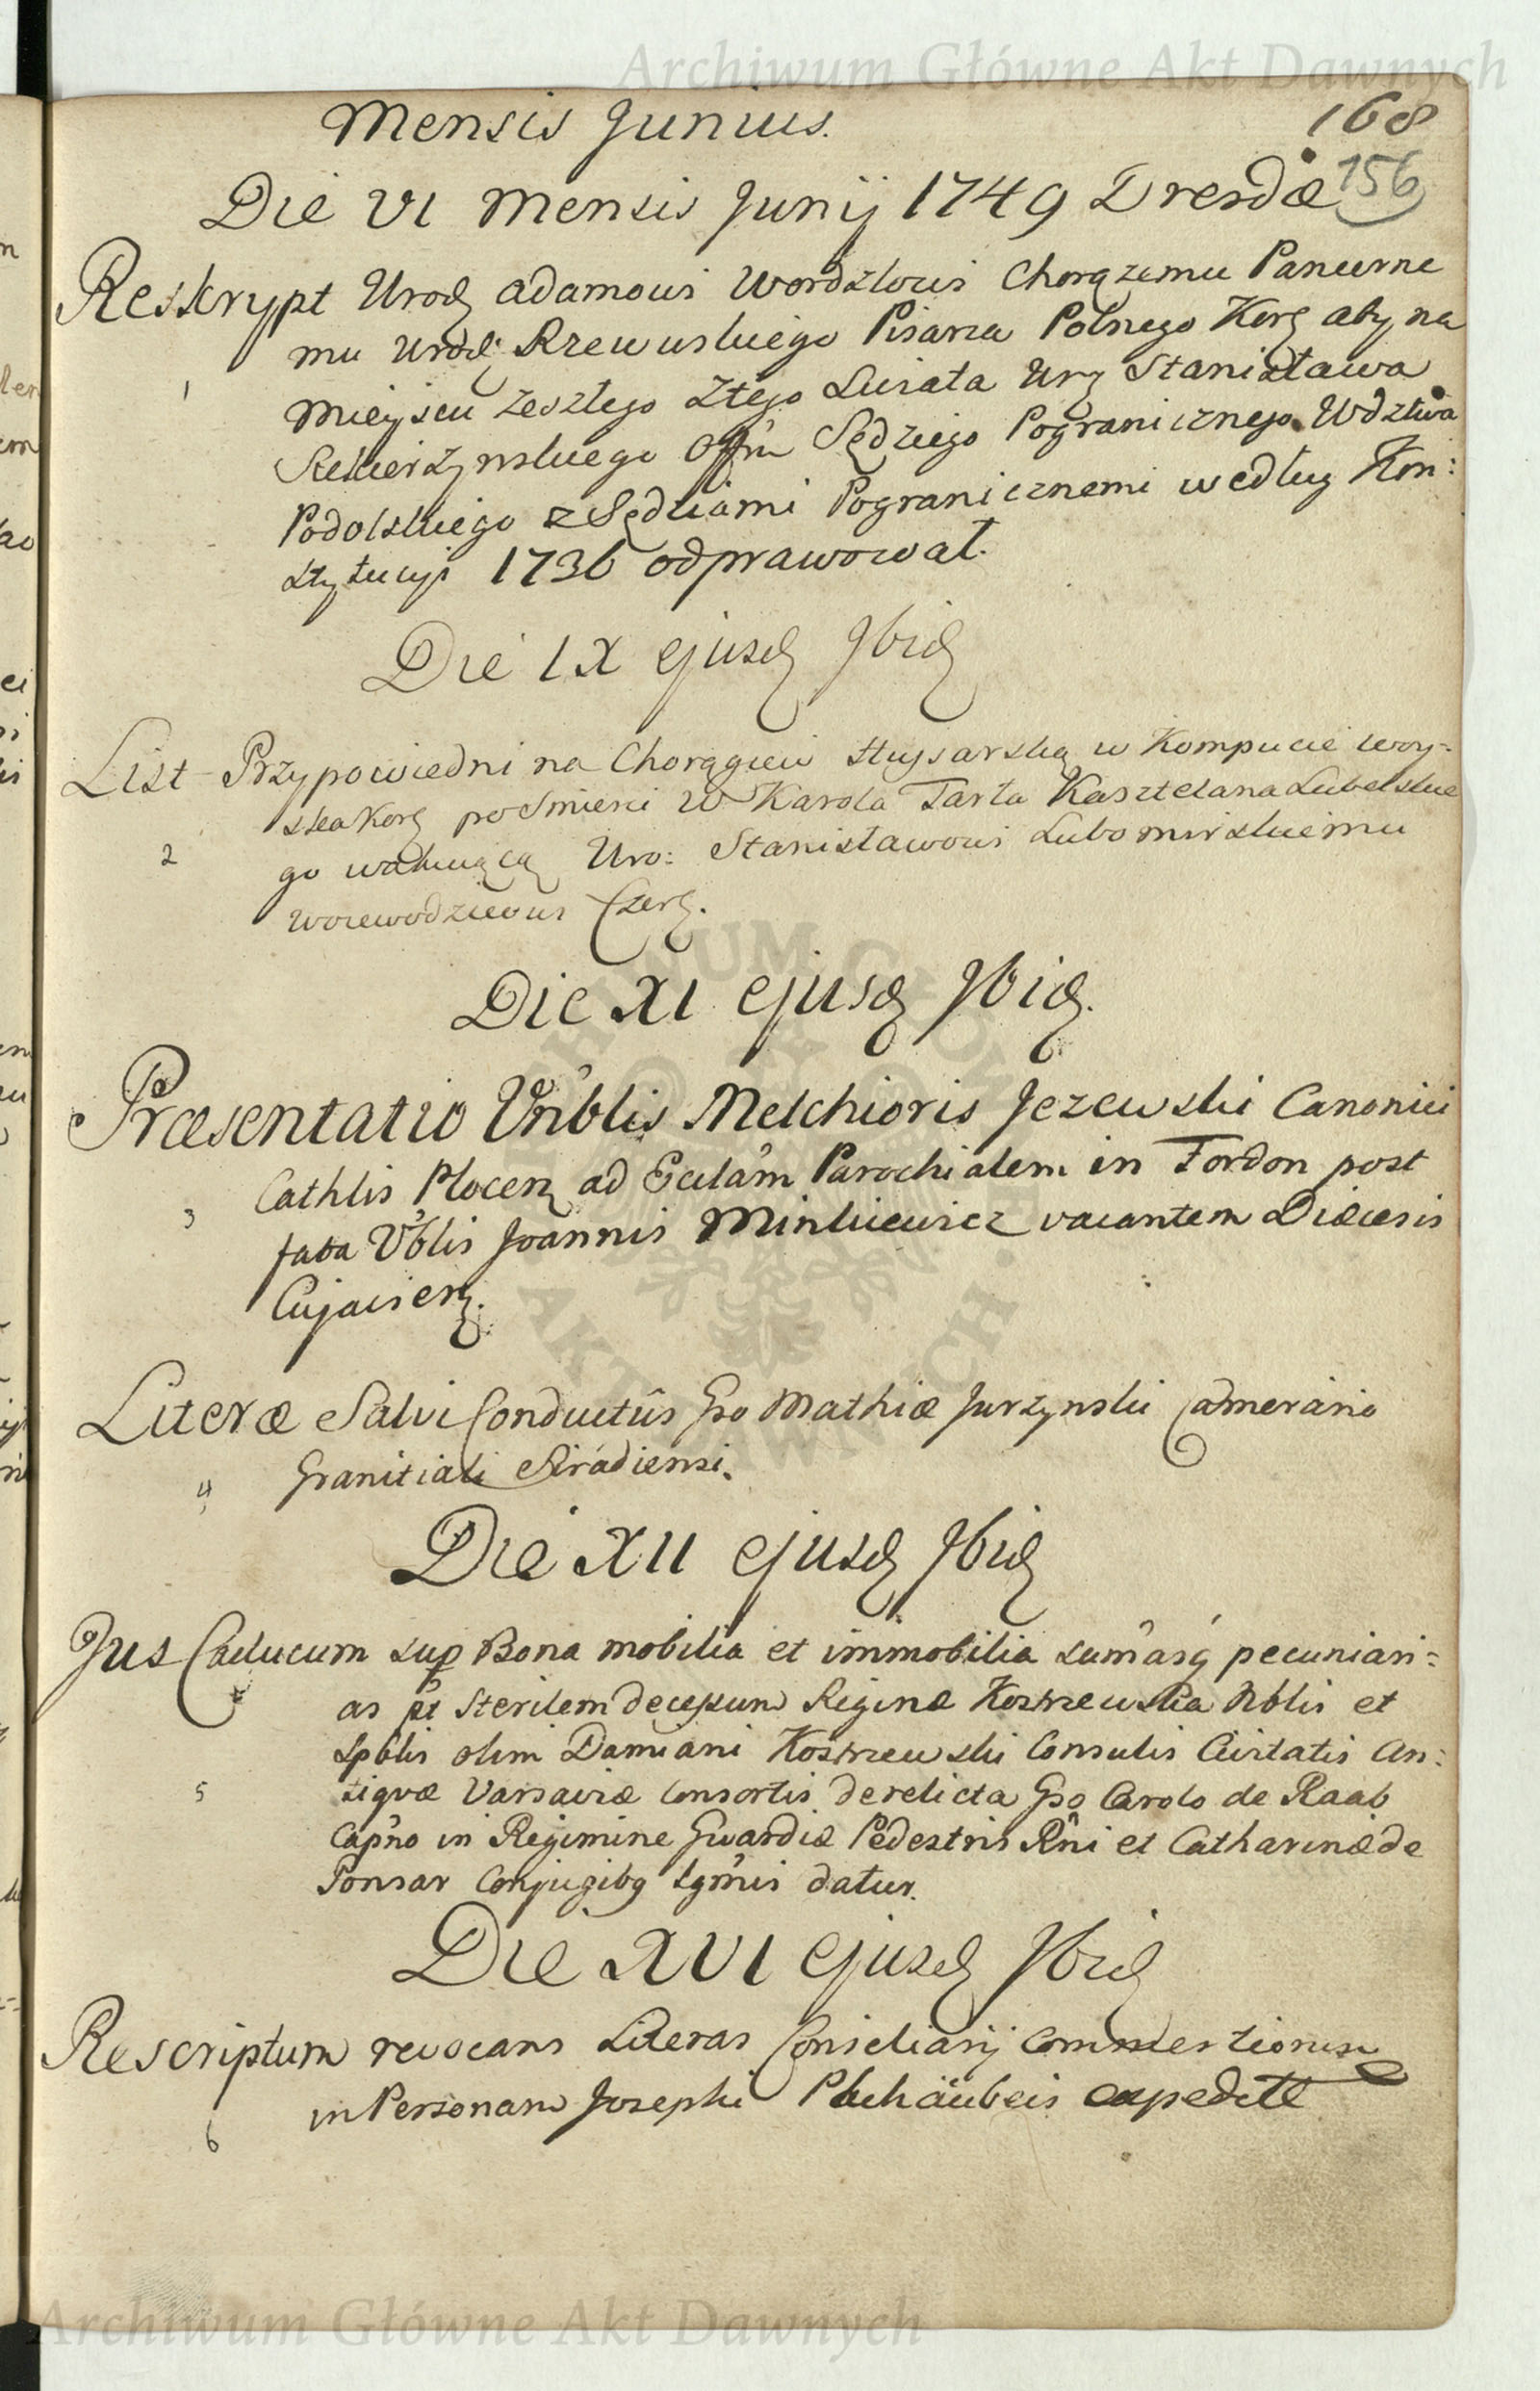 Archiwum Główne Akt Dawnych
Mensis Junius.
168
156
Die VI Mensis Junij 1749 Dresdæ
Reskrypt Urodz Adamowi Wordzlowi Chorązemu Pancerne
mu Urodz: Rzewuskiego Pisarza Polnego Kor aby na
1
Mieyscu zeszłego z tego Swiata Ur Stanisława
Skwierzynskiego Offm Sędziego Pogranicznego Wdztwa
Podolskiego z Sędziami Pogranicznemi według Kon:
stytucyi 1736 odprawował.
Die IX ejusd Ibid
List Przypowiedni na Chorągiew Hussarską w Kompucie woy=
ska Kor po Smierci W Karola Tarła Kasztelana Lubelskie
2
go wakuiącą Uro: Stanisławowi Lubomirskiemu
Woiewodzicowi Czer.
Die XI ejusd Ibid.
Præsentatio Vnblis Melchioris Jezewski Canonici
Cathlis Plocen ad Ecclam Parochialem in Fordon post
3
fata Vblis Joannis Minkiewicz vacantem Diæcesis
Cujavien.
Literæ Salvi Conductûs Gso Mathiæ Jurzynski Camerario
4
Granitiali Siradiensi.
Die XII ejusd Ibid
Jus Caducum sup Bona mobilia et immobilia sumasq pecuniari=
as pt sterilem decessum Reginæ Kostrzewska Nblis et
Spblis olim Damiani Kostrzewski Consulis Civitatis An:
5
tiqvæ Varsaviæ Consortis derelicta Gso Carolo de Raab
Capno in Regimine Gwardiæ Pedestris Rni et Catharinæ de
Ponsar Conjugibq Lgmis datur.
Die XVI ejusd Ibid
Rescriptum revocans Literas Consiliarij Commertiorum
in Personam Josephi expedite
6
Archiwum Główne Akt Dawnych